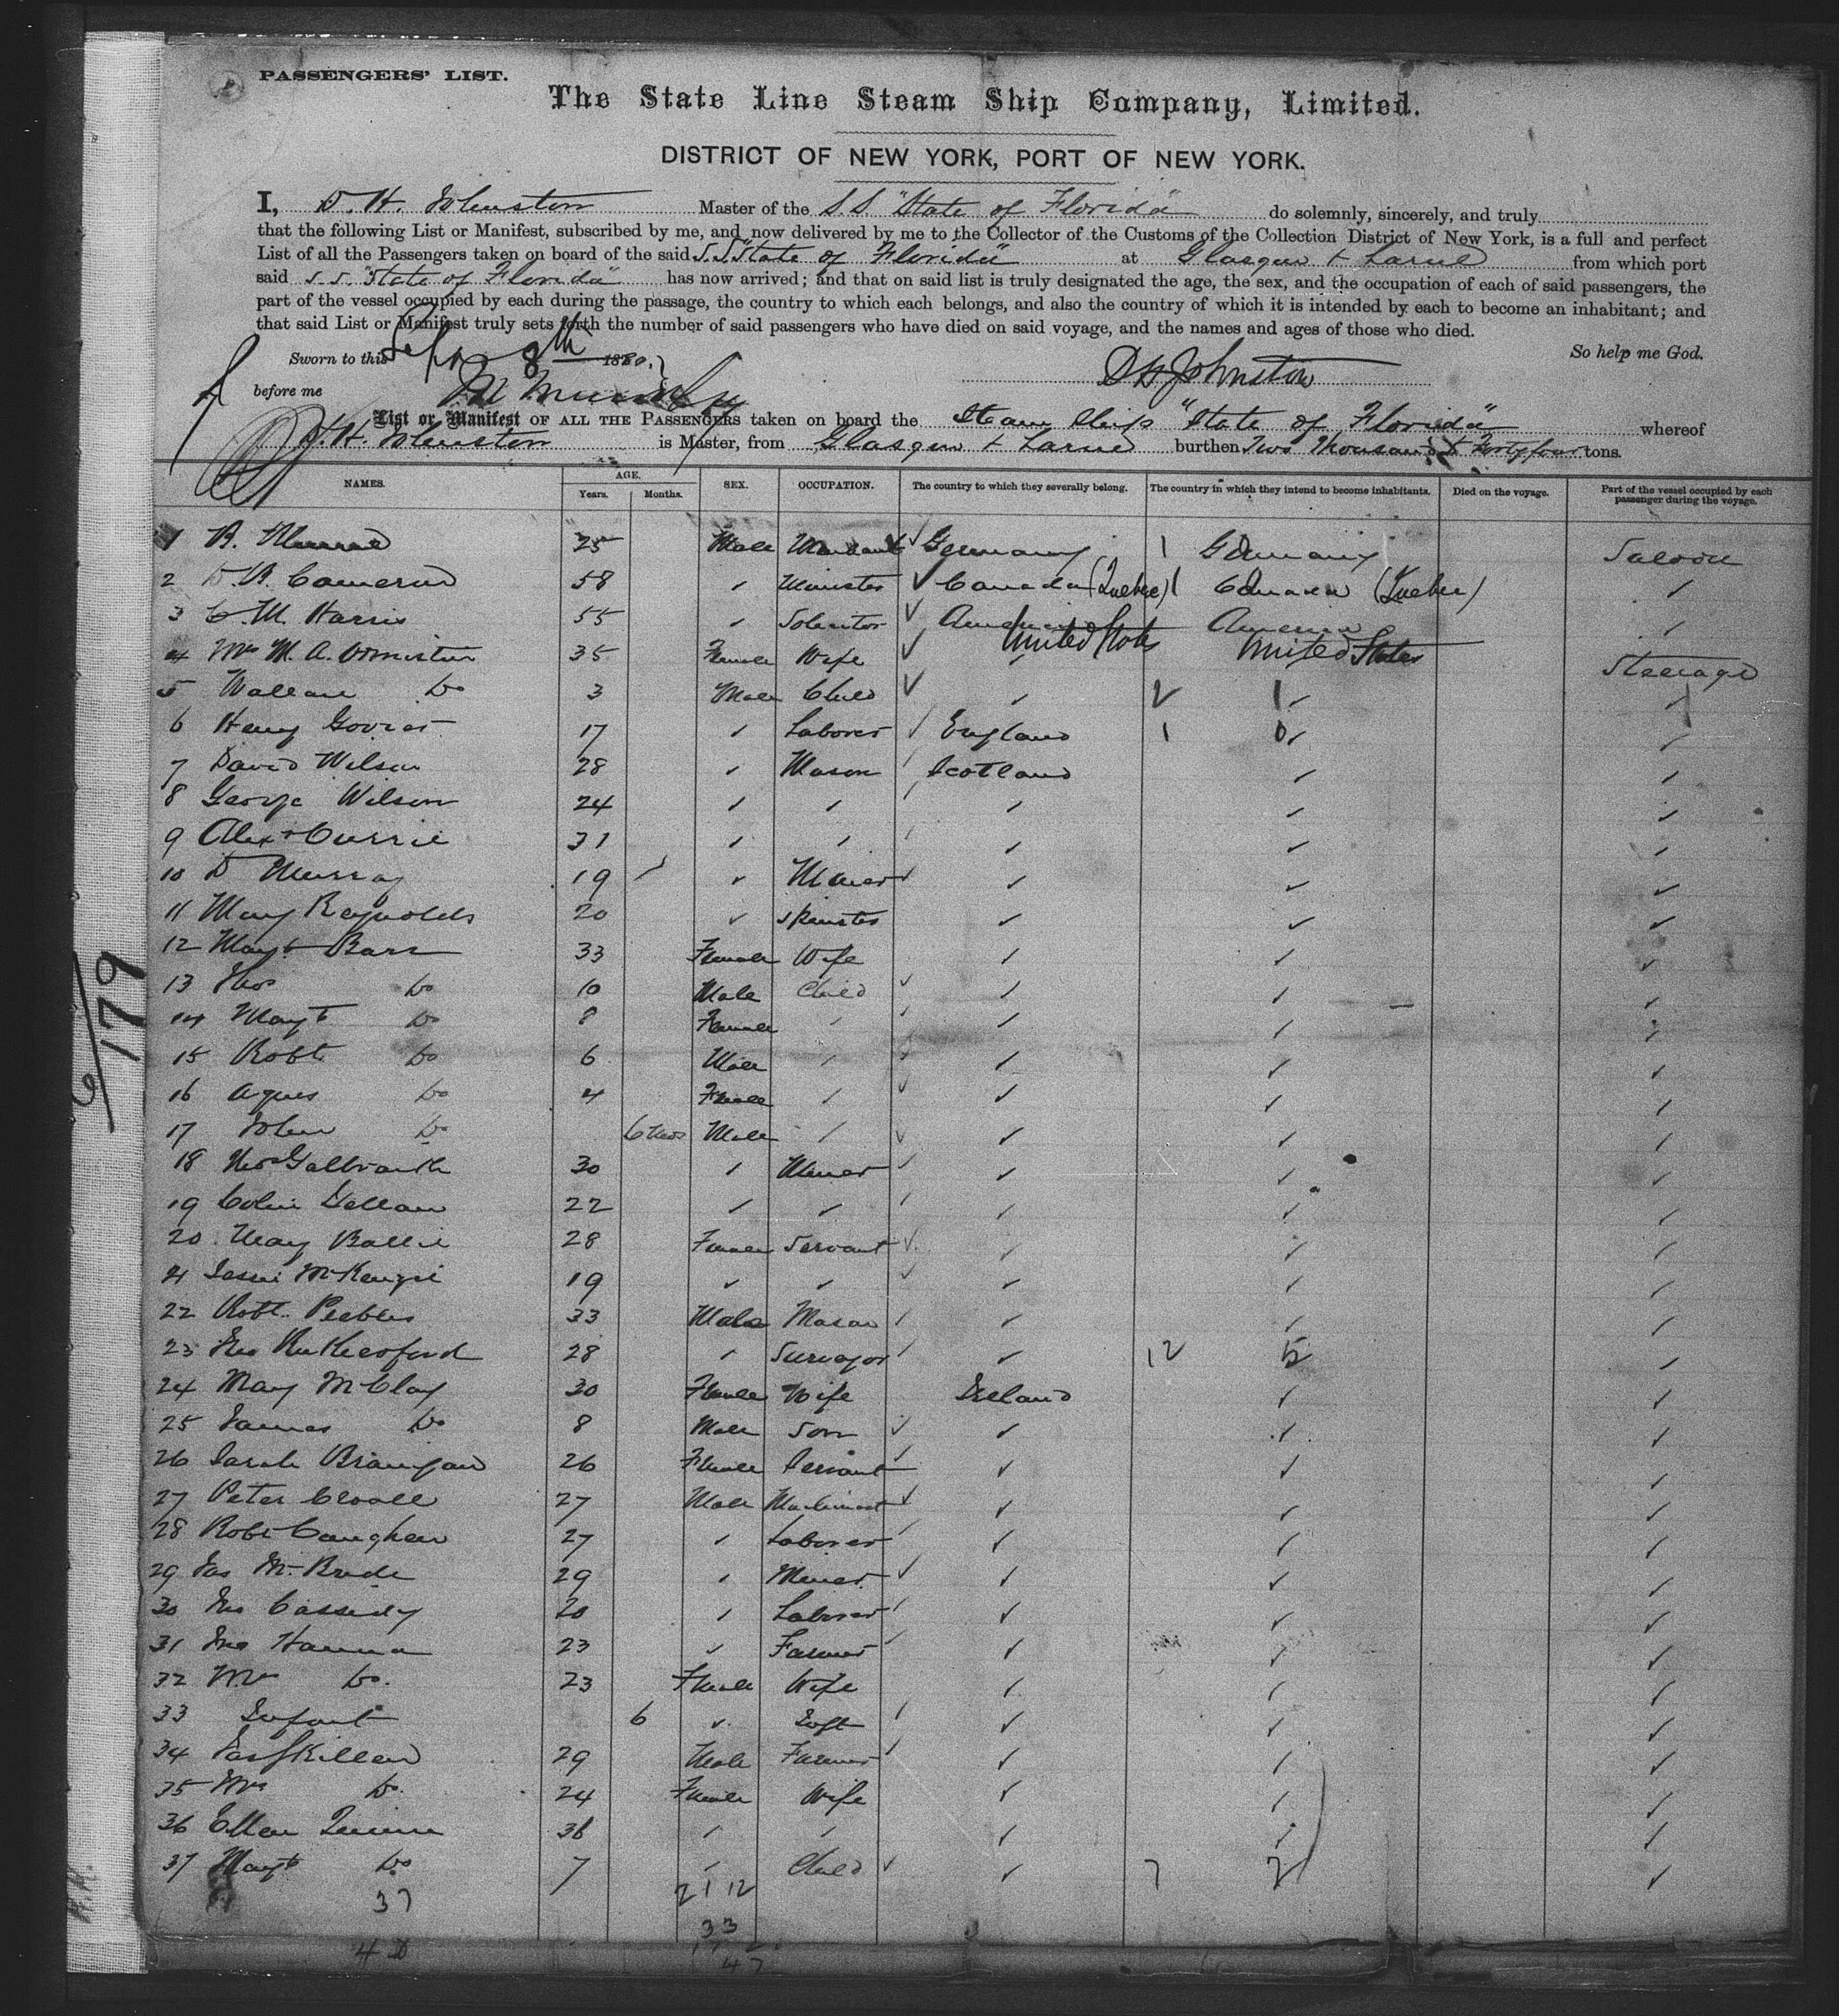 PASSENGERS' LIST.
The State Line Steam Ship Company, Limited.
DISTRICT OF NEW YORK, PORT OF NEW YORK.
I, D. H. Johnston Master of the S.S "State of Florida" do solemnly, sincerely, and truly
that the following List or Manifest, subscribed by me, and now delivered by me to the Collector of the Customs of the Collection District of New York, is a full and perfect
List of all the Passengers taken on board of the said S.S "State of Florida" at Glasgow + Larne from which port
said S.S. "State of Florida" has now arrived; and that on said list is truly designated the age, the sex, and the occupation of each of said passengers, the
part of the vessel occupied by each during the passage, the country to which each belongs, and also the country of which it is intended by each to become an inhabitant; and
that said List or Manifest truly sets forth the number of said passengers who have died on said voyage, and the names and ages of those who died.
So help me God.
Sworn to this Sept 8th 1880.
before me
D H Johnston
List or Manifest OF ALL THE PASSENGERS taken on board the Steam Ship "State of Florida" whereof
D. H. Johnston is Master, from Glasgow + Larne burthen Two Thousand & Forty four tons.
NAMES. AGE. Years. Months. SEX. OCCUPATION. The country to which they severally belong. The country in which they intend to become inhabitants. Died on the voyage. Part of the vessel occupied by each passenger during the voyage.
1 R. 25 Male Germany 1 Germany Saloon
2 D. R. Cameron 58 Minister Canada (Quebec) 1 Canada (Quebec)
3 C. M. Harris 55 Solicitor America America
United States United States
4 Mrs M. A. Ormiston 35 Female Wife Steerage
5 Wallace Do 3 Male Child 2 1
6 Henry 17 Laborer England 1 0
7 David Wilson 28 Mason Scotland
8 George Wilson 24
9 Alexr Currie 31
10 D Murray 19 Miner
11 Mary Reynolds 20 Spinster
12 Magt Barr 33 Female Wife
13 Thos Do 10 Male Child
14 Magt Do 8 Female
15 Robt Do 6 Male
16 Agnes Do 4 Female
17 John Do 6 mos Male
18 Galbraith 30 Miner
19 Colin 22
20 Mary Ballie 28 Female Servant
21 Jessie McKenzie 19
22 Robt. Peebles 33 Male Mason
23 Rutherford 28 Surveyor 12 5
24 Mary McClay 30 Female Wife Ireland
25 James Do 8 Male Son
26 Sarah Branigan 26 Female Servant
27 Peter Croall 27 Male Machinist
28 Robt Caughey 27 Laborer
29 Jas McBride 29 Miner
30 Jno Cassidy 20 Laborer
31 Jno Hanna 23 Farmer
32 Mrs Do. 23 Female Wife
33 Infant 6 Inft
34 Jas Skillen 29 Male Farmer
35 Mrs Do. 24 Female Wife
36 Ellen Quinn 36
37 Magt Do 7 Child 7 2
37 21 12
33
47
6/179